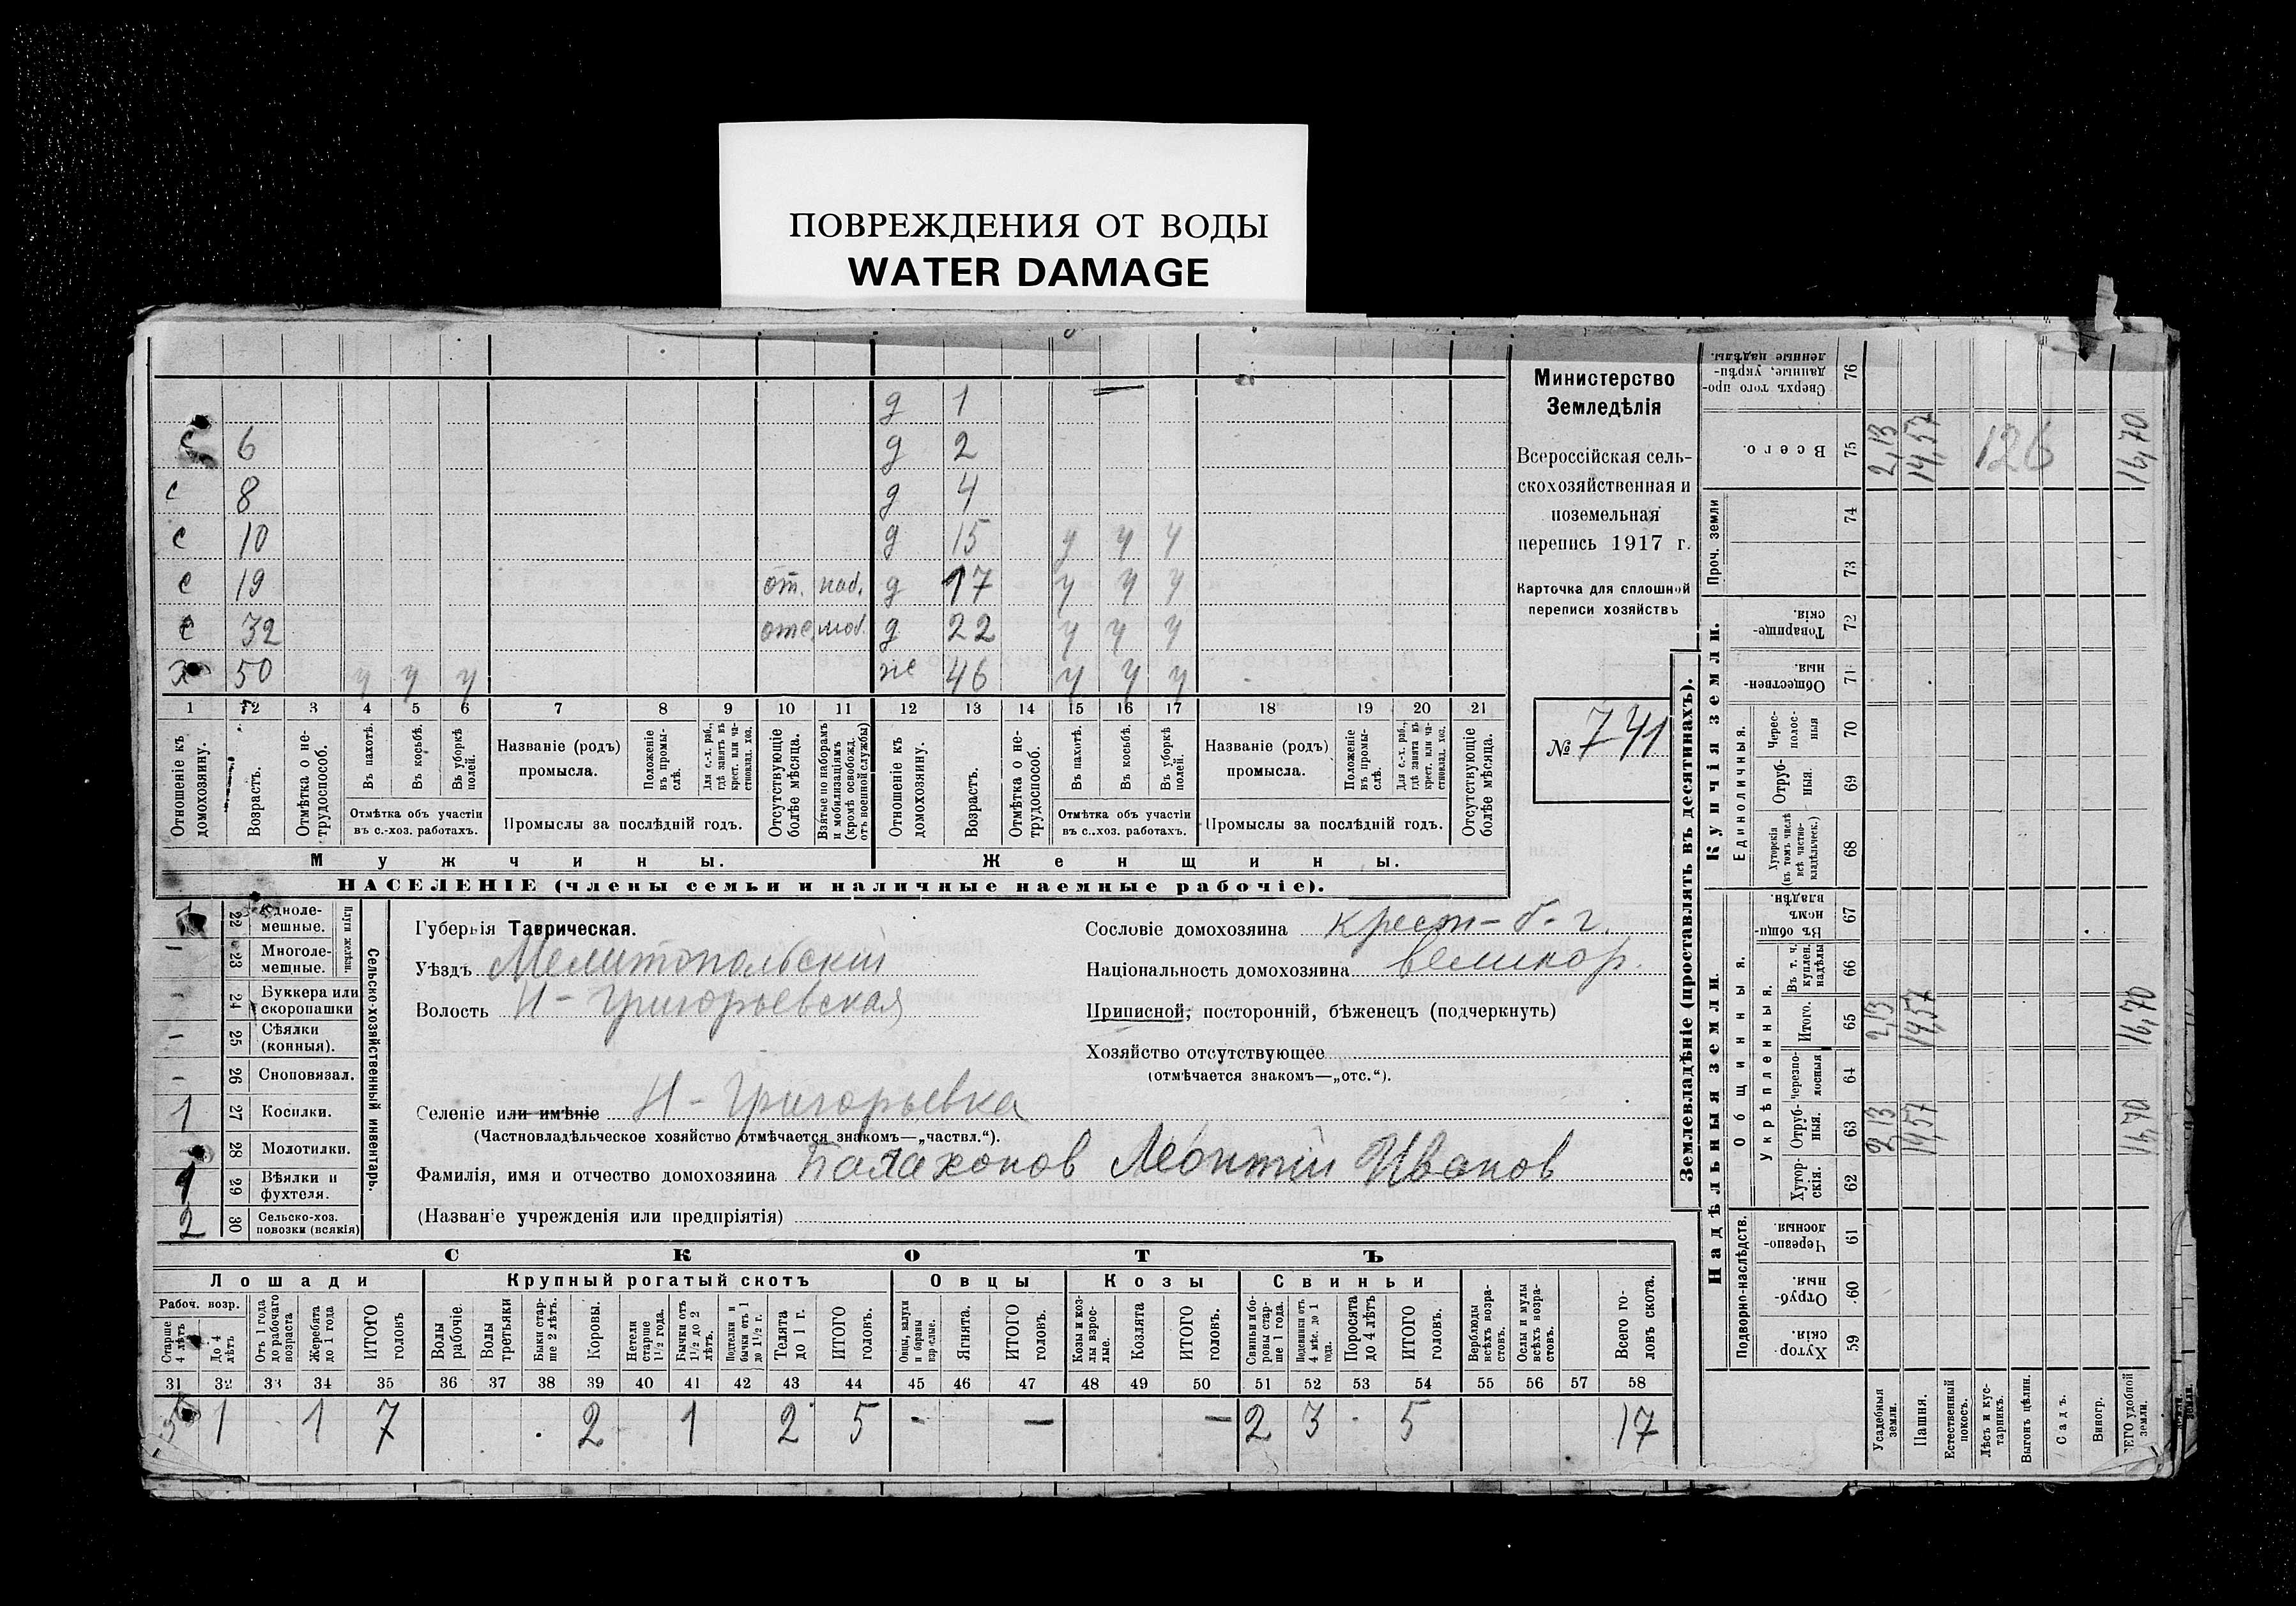 ПОВРЕЖДЕНИЯ ОТ ВОДЫ
WATER DAMAGE
д 1
с 6 д 2
с 8 д 4
с 10 д 15 у у у
с 19 от. наб. д 17 у у у
с 32 отс. моб. д 22 у у у
х 50 у у у же 46 у у у
1 2 3 4 5 6 7 8 9 10 11 12 13 14 15 16 17 18 19 20 21
Отношеніе къ домохозяину.
Возрастъ.
Отмѣтка о нетрудоспособ.
Въ пахотѣ.
Въ косьбѣ.
Въ уборкѣ полей.
Отмѣтка объ участіи въ с.-хоз. работахъ.
Названіе (родъ) промысла.
Положеніе въ промыслѣ.
Для с.-х. раб., гдѣ занятъ въ крест. или частновлад. хоз.
Промыслы за послѣдній годъ.
Отсутствующіе болѣе мѣсяца.
Взятые по наборамъ и мобилизаціямъ (кромѣ освобожд. отъ военной службы)
Отношеніе къ домохозяину.
Возрастъ.
Отмѣтка о нетрудоспособ.
Въ пахотѣ.
Въ косьбѣ.
Въ уборкѣ полей.
Отмѣтка объ участіи въ с.-хоз. работахъ.
Названіе (родъ) промысла.
Положеніе въ промыслѣ.
Для с.-х. раб., гдѣ занята въ крест. или частновлад. хоз.
Промыслы за послѣдній годъ.
Отсутствующіе болѣе мѣсяца.
Мужчины. Женщины.
НАСЕЛЕНІЕ (члены семьи и наличные наемные рабочіе).
Министерство
Земледѣлія
Всероссійская сель-
скохозяйственная и
поземельная
перепись 1917 г.
Карточка для сплошной
переписи хозяйствъ
№ 741
22 Однолемешные.
Плуги желѣзн.
- 23 Многолемешные.
- 24 Буккера или скоропашки
- 25 Сѣялки (конныя).
- 26 Сноповязал.
1 27 Косилки.
28 Молотилки.
1 29 Вѣялки и фухтеля.
2 30 Сельско-хоз. повозки (всякія)
Сельско-хозяйственный инвентарь.
Губернія Таврическая.
Уѣздъ Мелитопольскій
Волость Н-Григорьевская
Селеніе или имѣніе Н-Григорьевка
(Частновладѣльческое хозяйство отмѣчается знакомъ—„частвл.“).
Фамилія, имя и отчество домохозяина Балахонов Леонтій Иванов
(Названіе учрежденія или предпріятія)
Сословіе домохозяина крест-б-г.
Національность домохозяина великор.
Приписной, посторонній, бѣженецъ (подчеркнуть)
Хозяйство отсутствующее
(отмѣчается знакомъ—„отс.“).
СКОТЪ
Лошади Крупный рогатый скотъ Овцы Козы Свиньи
Рабоч. возр.
Старше 4 лѣтъ
До 4 лѣтъ
Отъ 1 года до рабочаго возраста
Жеребята до 1 года
ИТОГО головъ
Волы рабочіе.
Волы третьяки
Быки старше 2 лѣтъ.
Коровы.
Нетели старше 1 1/2 года.
Бычки отъ 1 1/2 до 2 лѣтъ.
Подтелки и бычки отъ 1 до 1 1/2 г.
Телята до 1 г.
ИТОГО головъ.
Овцы, валухи и бараны взрослые.
Ягнята.
ИТОГО головъ.
Козы и козлы взрослые.
Козлята
ИТОГО головъ.
Свиньи и боровы старше 1 года.
Подсвинки отъ 4 мѣс. до 1 года.
Поросята до 4 лѣтъ
ИТОГО головъ.
Верблюды всѣхъ возрастовъ.
Ослы и мулы всѣхъ возрастовъ.
Всего головъ скота.
31 32 33 34 35 36 37 38 39 40 41 42 43 44 45 46 47 48 49 50 51 52 53 54 55 56 57 58
5 1 1 7 2 1 2 5 - - - 2 3 5 17
Землевладѣніе (проставлять въ десятинахъ).
Надѣльныя земли. Купчія земли. Проч. земли
Подворно-наслѣдств. Общинныя. Единоличныя.
Укрѣпленныя.
Хуторскія. 59
Отрубныя. 60
Черезполосныя 61
Хуторскія. 62
Отрубныя. 63
черезполосныя 64
Итого. 65
Въ т. ч. куплен. надѣлы 66
Въ общинномъ владѣн. 67
Хуторскія (въ томъ числѣ всѣ частновладѣльческ.) 68
Отрубныя. 69
Черезполосныя 70
Общественныя. 71
Товарищескія. 72
73
74
Всего. 75
Сверхъ того проданные, укрѣпленные надѣлы. 76
Усадебныя земли. 2,13 2,13 2,13
Пашня. 14,57 14,57 14,57
Естественный покосъ.
Лѣсъ и кустарникъ.
Выгонъ цѣлин.
Садъ.
Виногр.
ЕГО удобной земли. 16,70 16,70 16,70
126